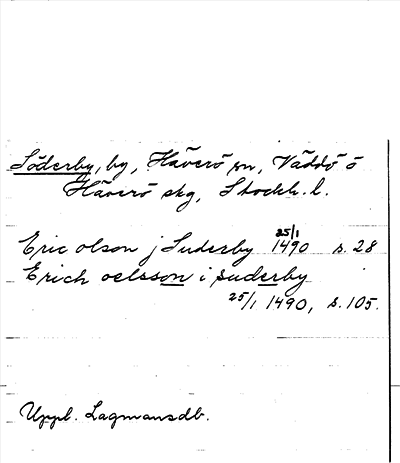 Söderby, by, Häverö sn, Väddö ö
Häverö skg, Stockh. l.
Eric olson j Suderby 25/1 1490 s. 28
Erich oelsson i suderby
25/1 1490, s. 105.
Uppl. Lagmansdb.